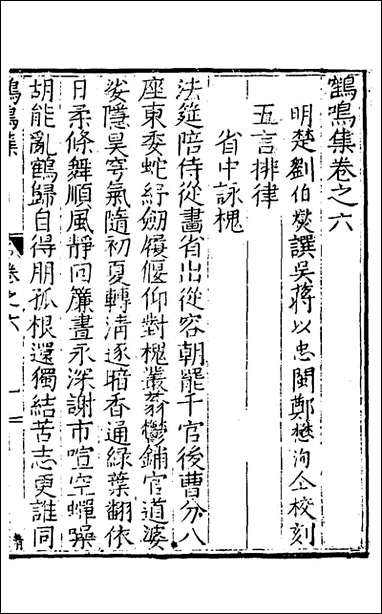 鶴鳴集卷之六
明楚劉伯燮譔吳蔣以忠閩鄭懋洵仝校刻
五言排律
省中詠槐
法筵陪侍從畫省出從容朝罷千官後曹分八
座東委蛇紆劒履偃仰對槐叢蓊鬱鋪官道婆
娑隱昊穹氣隨初夏轉淸逐暗香通綠葉翻依
日柔條舞順風靜回簾晝永深謝市喧空蟬噪
胡能亂鶴歸自得朋孤根還獨結苦志更誰同
鶴鳴集
卷之六
一